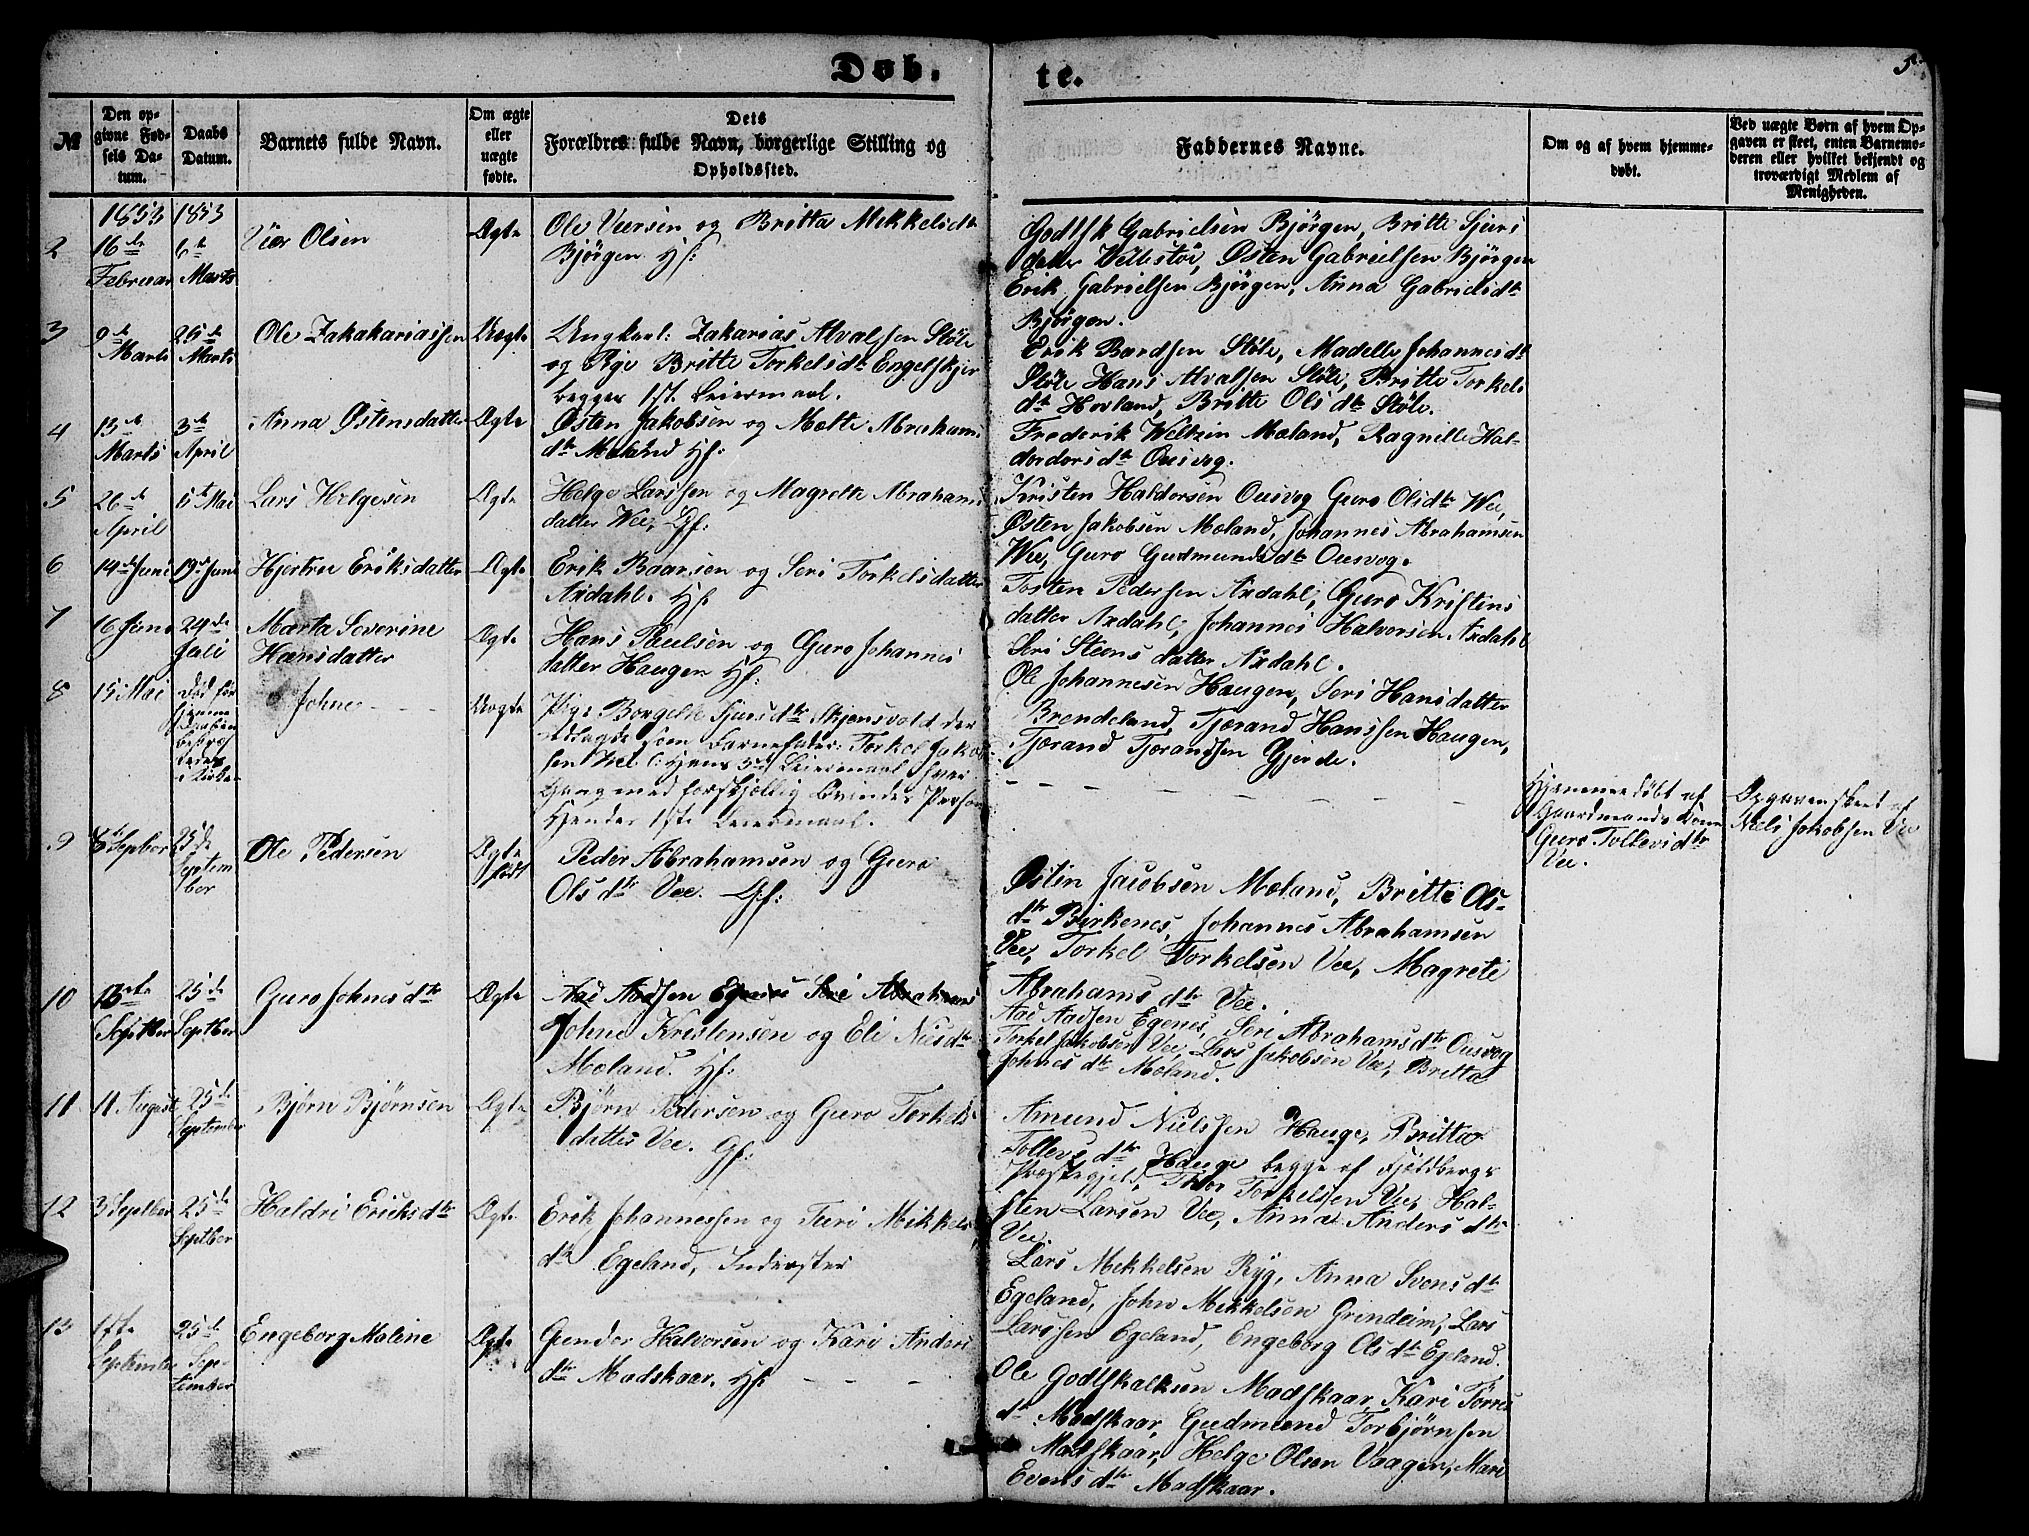 Døb.
te.
5
№
Den op-
givne Fød-
sels Da-
tum.
Daabs
Datum.
Barnets fulde Navn.
Om ægte
eller
uægte
fødte.
Dets
Forældres fulde Navn, borgerlige Stilling og
Opholdssted.
Faddernes Navne.
Om og af hvem hjemme-
døbt.
Ved uægte Børn af hvem Op-
gaven er skeet, enten Barnemo-
deren eller hvilket bekjendt og
troværdigt Medlem af
Menigheden.
1853 1853
2
16de
Februar
6te
Marts
Olsen
Ægte
Ole og Britta Mikkelsdtr
Bjørgen Hf:
Godtsk Gabrielsen Bjørgen, Britte Sjurs
datter Østen Gabrielsen Bjørgen
Erik Gabrielsen Bjørgen, Anna Gabrielsdtr
Bjørgen.
3
9de
Marts
25de
Marts
Ole Zakakariassen
Uægte
Ungkarl: Zakarias Alvalssen Støle
og Pige Britte Torkelsdtr Engelskjer
begges 1st. Leiermaal.
Erik Bardsen Støle, Madelle Johannesdtr
Støle Hans Alvalssen Støle, Britte Torkels
dtr Hovland, Britte Olsdtr Støle.
4
13de
Marts
3de
April
Anna Østensdatter
Ægte
Østen Jakobsen og Malte Abrahams
dtr Moland Hf:
Frederik Weltzin Moland, Ragnille Hal-
dordorsdtr Ousvog.
5
26de
April
5te Mai
Lars Helgesen
Ægte
Helge Larssen og Magrette Abrahams
datter Wee, Gf:
Kristen Haldorsen Ousvog Guro Olsdtr Wee,
Østen Jakobsen Moland, Johannes Abrahamsen
Wee, Guro Gudmundsdtr Ousvog.
6
14de Juni
19de Juni
Hjertru Eriksdatter
Ægte
Erik Baarsen og Seri Torkelsdatter
Axdahl. Hf
Tosten Pedersen Axdahl, Guro Kristens
datter Axdahl, Johannes Halvorsen Axdahl
Seri Steensdatter Axdahl.
7
16 Juni
24de
Juli
Marta Severine
Hansdatter
Ægte
Hans Paulsen og Guro Johannes
datter Haugen Hf:
Ole Johannesen Haugen, Seri Hansdatter
Brendeland, Tjerand Hanssen Haugen,
Tjerand Tjerandsen Gjerde.
8
15 Mai
Død før
hjemme
Daaben
i Kirken
Johne
Uægte
Pige Borgelde Sjursdtr Skjensvold der
udlagde som Barnefader: Torkel Jakob
sen Vee: Hans 3die Leiermaal hver
Gang med forskjellig Qvindes Person
Hendes 1ste Leiermaal.
Hjemmedøbt af
Gaardmands Kone
Guro Tollevsdtr
Vee.
Opgaven skeet af
Niels Jakobsen Vee
9
8de Septber
25de
Septem
ber
Ole Pedersen
Ægte
født
Peder Abrahamsen og Guro
Olsdtr Vee. Gf:
Østin Jacobsen Moland, Britte Ols-
dtr Birkenes, Johannes Abrahamsen
Vee, Torkel Torkelsen Vee, Magrete
Abrahamsdtr Vee.
10
Septber
25de
Septber
Guro Johnesdtr
Ægte
Aad Aadsen Egenes Seri Abrahams
Johne Kristensen og Eli Nielsdtr
Moland. Hf:
Aad Aadsen Egenes, Seri Abrahamsdtr Ousvog
Torkel Jakobsen Vee, Lars Jakobsen Vee, Britta
Johnesdtr Moland.
11
11 August
25de
September
Bjørn Bjørnsen
Ægte
Bjørn Pedersen og Guro Torkels-
datter Vee. Gf:
Amund Nielssen Hauge, Britta
Tollevsdtr Hauge begge af Fjeldbergs
Præstegjeld, Thor Torkelsen Vee, Hal-
sten Larsen Vee, Anna Andersdtr
Vee
12
3 Septber
25de
Septber
Haldri Eriksdtr
Ægte
Erik Johannessen og Turi Mikkels
dtr Egeland, Inderster
Lars Mikkelsen Ryg, Anna Svensdtr
Egeland, John Mikkelsen Grindeim, Lars
Larssen Egeland, Engeborg Olsdtr Egeland.
13
17te
September
25de
Sep-
tember
Engeborg Maline
Ægte
Gunder Halvorsen og Kari Anders
dtr Madskaar. Hf:
Ole Godtskalksen Madskaar, Kari Torres
dtr Madskaar, Gudmund Torbjørnsen
Madskaar, Helge Olsen Vaagen, Mari
Evensdtr Madskaar.